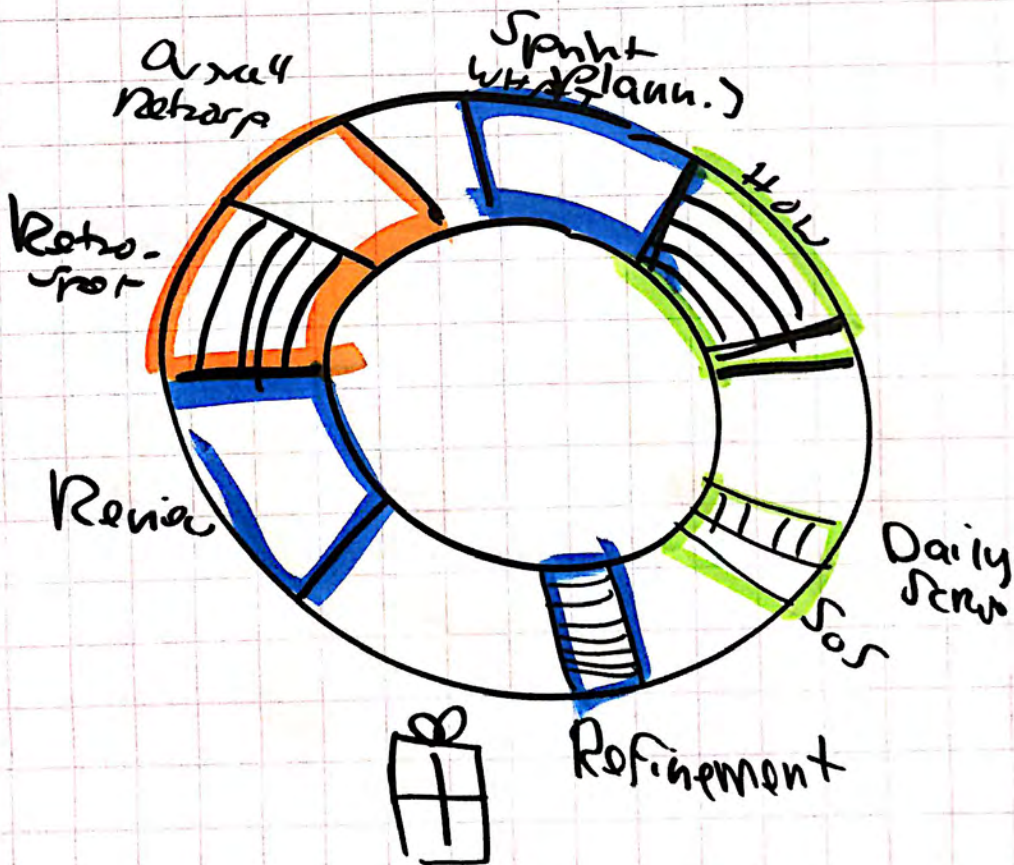 Overall
Retrosp.
Sprint
WHAT Plann.)
HOW
Retro-
spot
Review
Daily
Scrum
SoS
Refinement